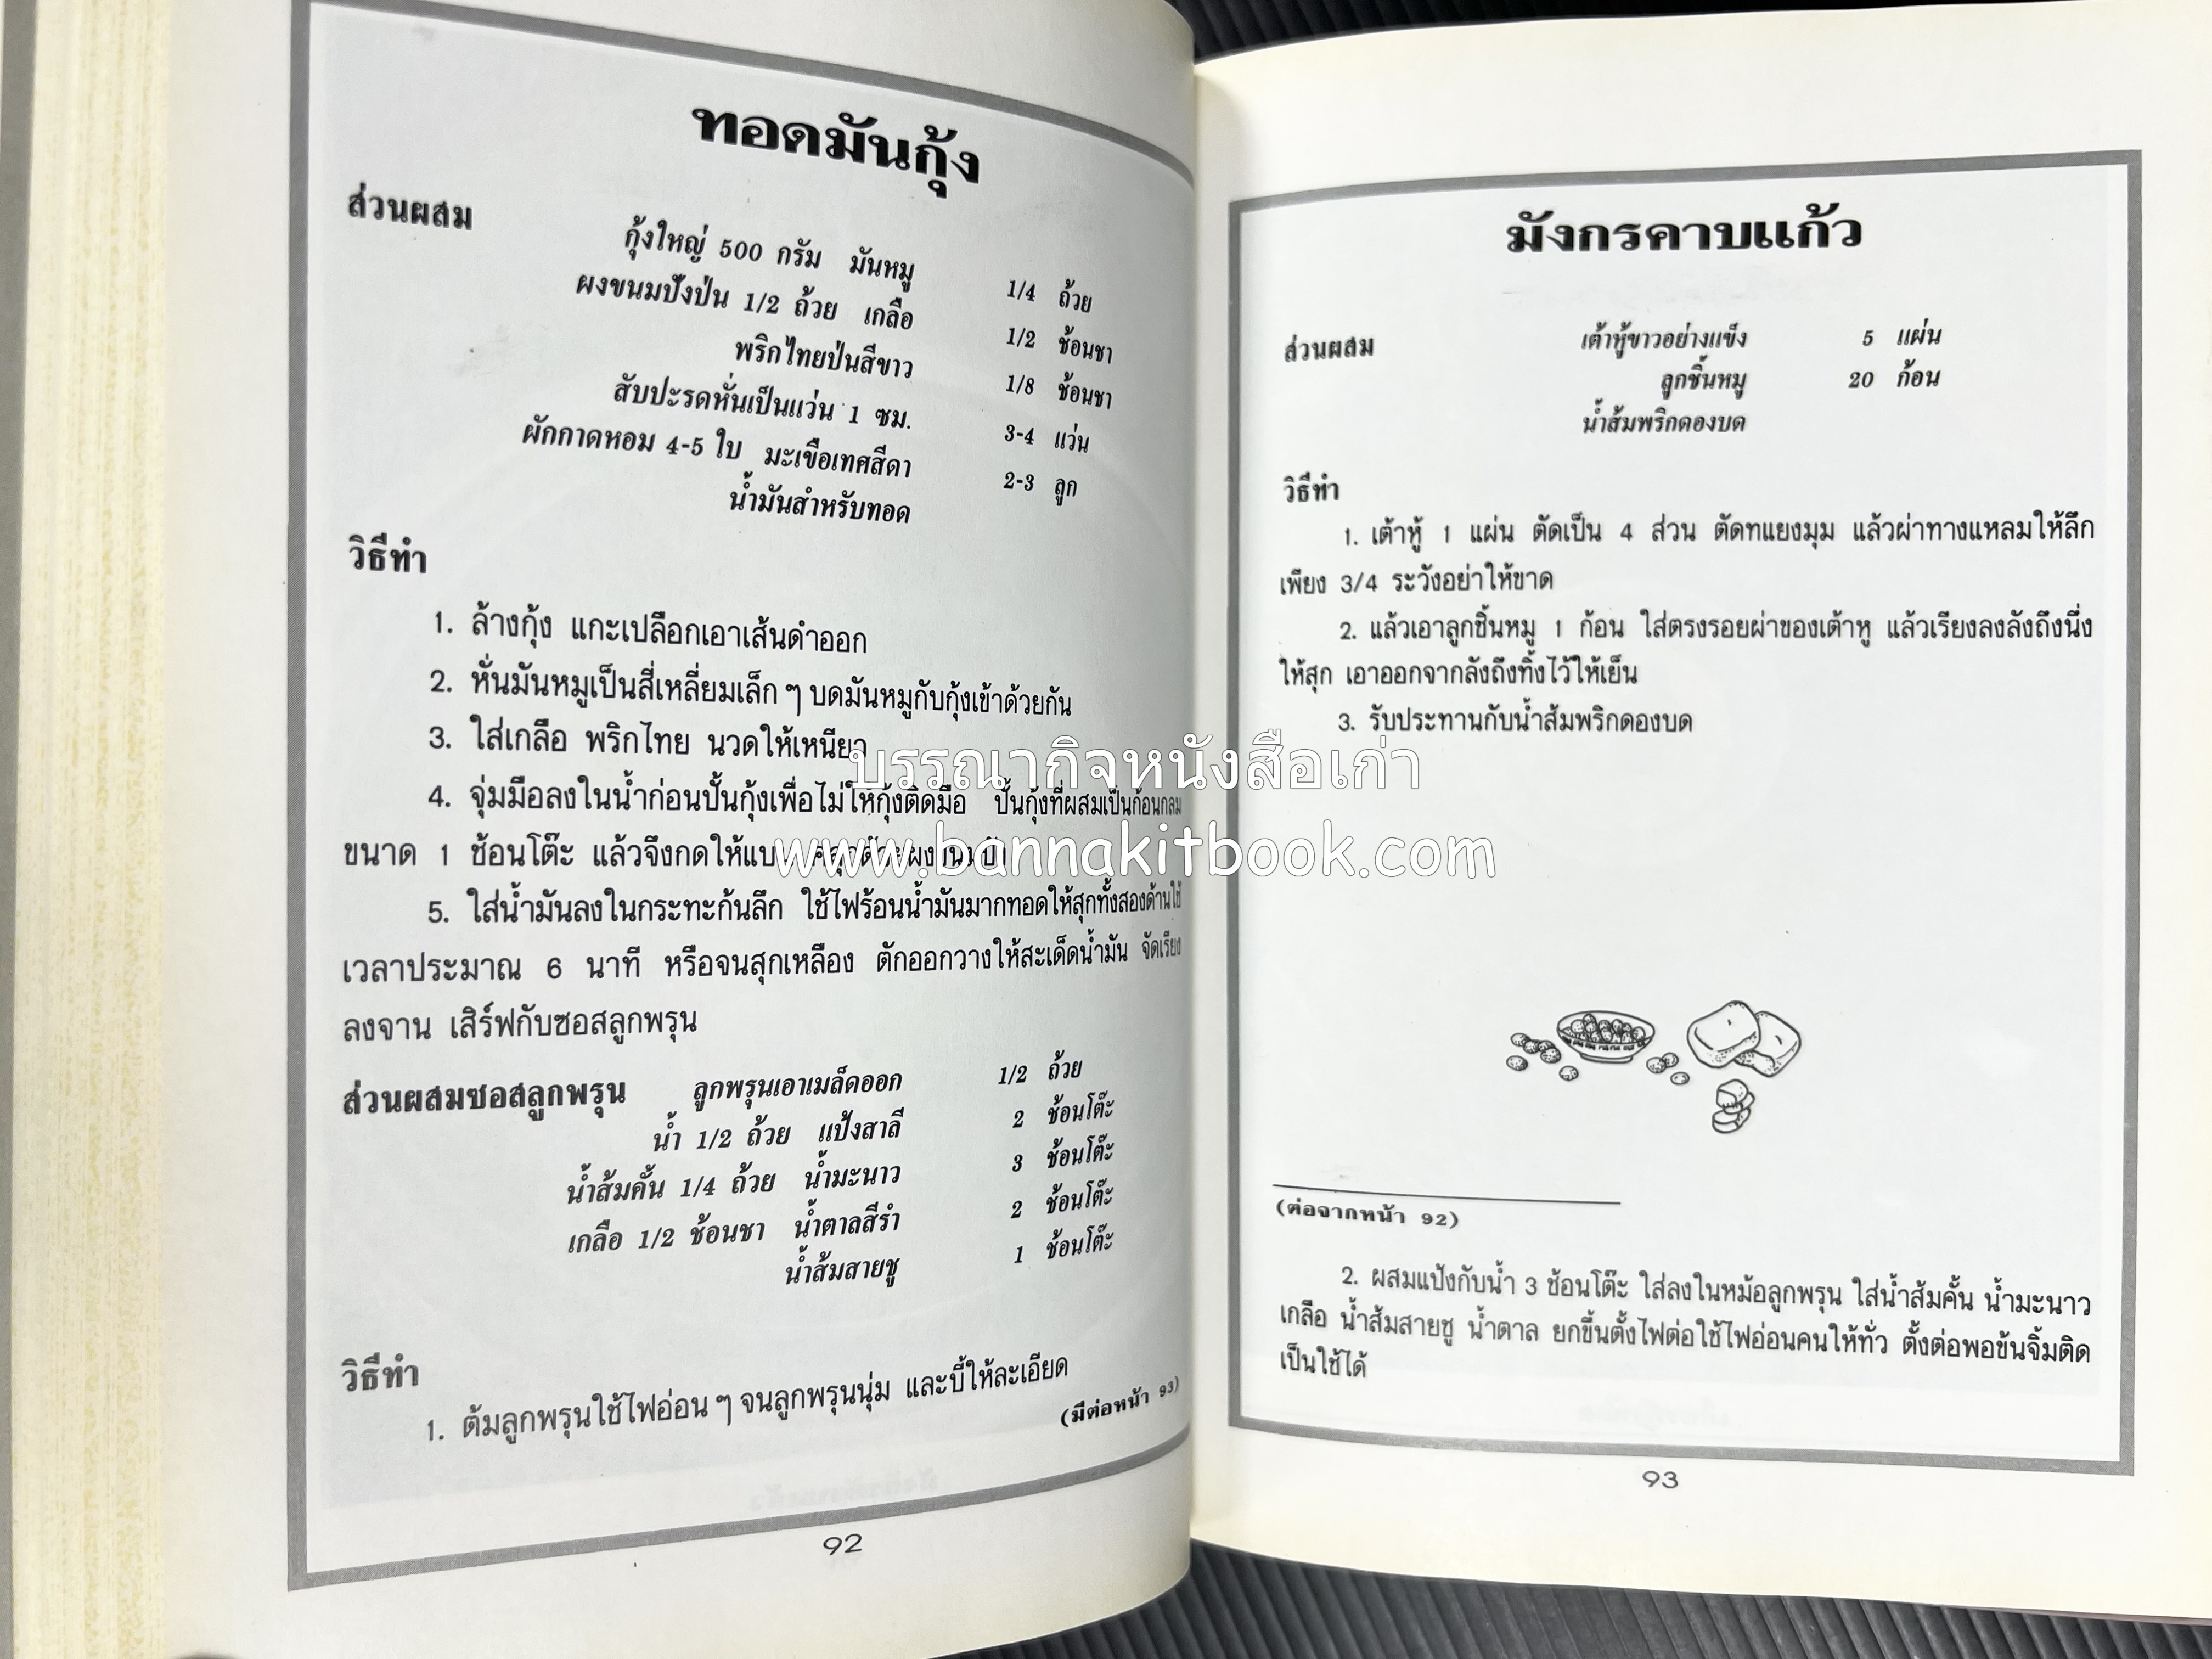 ทอดมันกุ้ง
ส่วนผสม
กุ้งใหญ่ 500 กรัม มันหมู 1/4 ถ้วย
ผงขนมปังป่น 1/2 ถ้วย เกลือ 1/2 ช้อนชา
พริกไทยป่นสีขาว 1/8 ช้อนชา
สับปะรดหั่นเป็นแว่น 1 ซม. 3-4 แว่น
ผักกาดหอม 4-5 ใบ มะเขือเทศสีดา 2-3 ลูก
น้ำมันสำหรับทอด
วิธีทำ
1. ล้างกุ้ง แกะเปลือกเอาเส้นดำออก
2. หั่นมันหมูเป็นสี่เหลี่ยมเล็ก ๆ บดมันหมูกับกุ้งเข้าด้วยกัน
3. ใส่เกลือ พริกไทย นวดให้เหนียว
4. จุ่มมือลงในน้ำก่อนปั้นกุ้งเพื่อไม่ให้กุ้งติดมือ ปั้นกุ้งที่ผสมเป็นก้อนกลม
ขนาด 1 ช้อนโต๊ะ แล้วจึงกดให้แบน คลุกด้วยผงขนมปัง
5. ใส่น้ำมันลงในกระทะก้นลึก ใช้ไฟร้อนน้ำมันมากทอดให้สุกทั้งสองด้านใช้
เวลาประมาณ 6 นาที หรือจนสุกเหลือง ตักออกวางให้สะเด็ดน้ำมัน จัดเรียง
ลงจาน เสิร์ฟกับซอสลูกพรุน
ส่วนผสมซอสลูกพรุน ลูกพรุนเอาเมล็ดออก 1/2 ถ้วย
น้ำ 1/2 ถ้วย แป้งสาลี 2 ช้อนโต๊ะ
น้ำส้มคั้น 1/4 ถ้วย น้ำมะนาว 3 ช้อนโต๊ะ
เกลือ 1/2 ช้อนชา น้ำตาลสีรำ 2 ช้อนโต๊ะ
น้ำส้มสายชู 1 ช้อนโต๊ะ
วิธีทำ
1. ต้มลูกพรุนใช้ไฟอ่อน ๆ จนลูกพรุนนุ่ม และบี้ให้ละเอียด
(มีต่อหน้า 93)
92
มังกรคาบแก้ว
ส่วนผสม เต้าหู้ขาวอย่างแข็ง 5 แผ่น
ลูกชิ้นหมู 20 ก้อน
น้ำส้มพริกดองบด
วิธีทำ
1. เต้าหู้ 1 แผ่น ตัดเป็น 4 ส่วน ตัดทแยงมุม แล้วผ่าทางแหลมให้ลึก
เพียง 3/4 ระวังอย่าให้ขาด
2. แล้วเอาลูกชิ้นหมู 1 ก้อน ใส่ตรงรอยผ่าของเต้าหู แล้วเรียงลงลังถึงนึ่ง
ให้สุก เอาออกจากลังถึงทิ้งไว้ให้เย็น
3. รับประทานกับน้ำส้มพริกดองบด
บรรณากิจหนังสือเก่า
www.bannakitbook.com
(ต่อจากหน้า 92)
2. ผสมแป้งกับน้ำ 3 ช้อนโต๊ะ ใส่ลงในหม้อลูกพรุน ใส่น้ำส้มคั้น น้ำมะนาว
เกลือ น้ำส้มสายชู น้ำตาล ยกขึ้นตั้งไฟต่อใช้ไฟอ่อนคนให้ทั่ว ตั้งต่อพอข้นจิ้มติด
เป็นใช้ได้
93